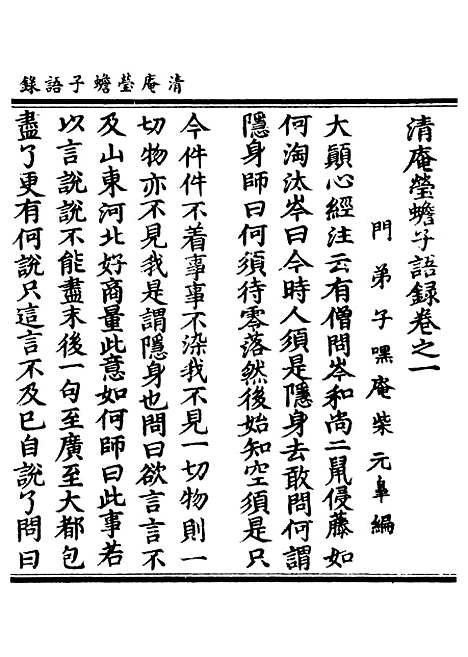 清庵瑩蟾子語錄
清庵瑩蟾子語録卷之一
門弟子嘿庵柴元皐編
大顚心經注云有僧問岑和尚二鼠侵藤如
何淘汰岑曰今時人須是隱身去敢問何謂
隱身師曰何須待零落然後始知空須是只
今件件不着事事不染我不見一切物則一
切物亦不見我是謂隱身也問曰欲言言不
及山東河北好商量此意如何師曰此事若
以言說說不能盡末後一句至廣至大都包
盡了更有何說只這言不及已自說了問曰